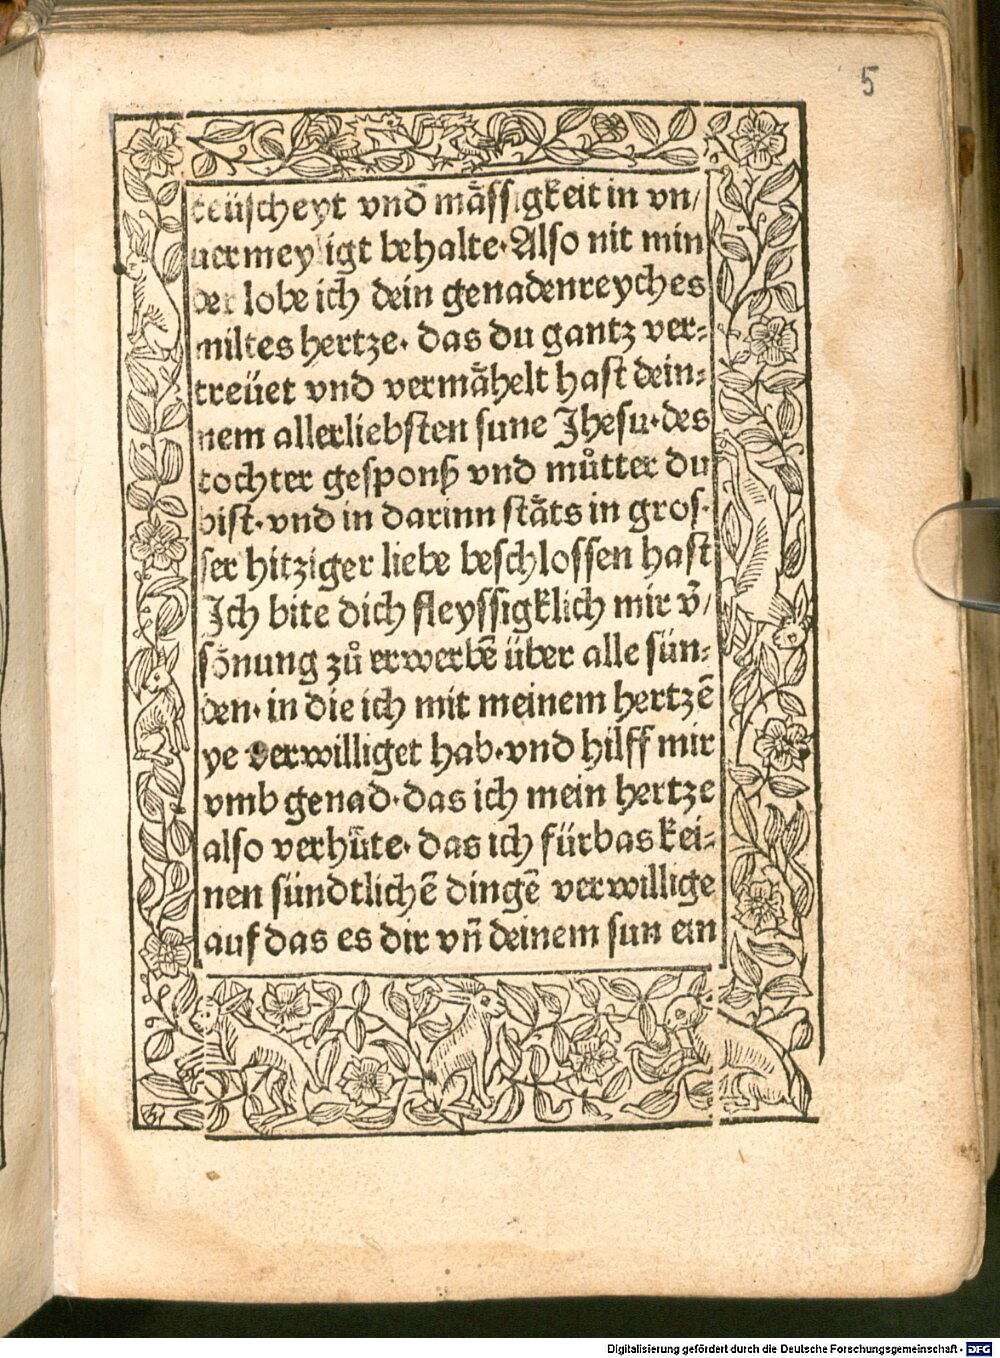 5
keüscheyt vnd mässigkeit in vn/
uermeyligt behalte·Also nit min
der lobe ich dein genadenreyches
miltes hertze· das du gantz ver:
treüet vnd vermähelt hast dein:
nem allerliebsten sune Jhesu·des
tochter gesponß vnd můtter du
bist·vnd in darinn stäts in gros:
ser hitziger liebe beschlossen hast
Jch bite dich fleyssigklich mir v̄/
sönung zů erwerbē über alle sün:
den· in die ich mit meinem hertzē
ye verwilliget hab·vnd hilff mir
vmb genad·das ich mein hertze
also verhüte· das ich fürbas kei:
nen sündtlichē dingē verwillige
auf das es dir vn̄ deinem sun ein
Digitalisierung gefördert durch die Deutsche Forschungsgemeinschaft - DFG